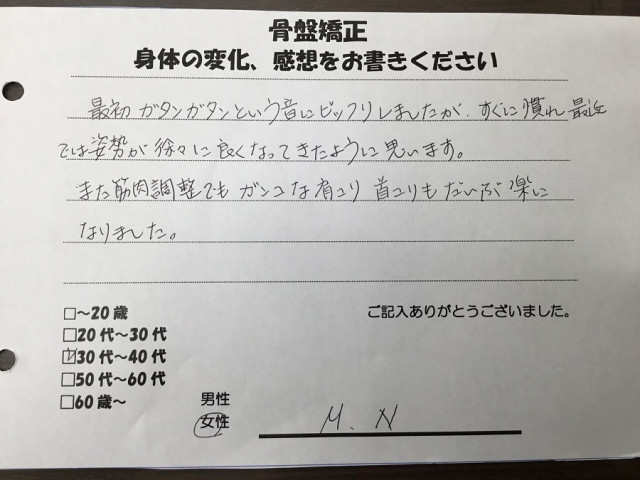 骨盤矯正
身体の変化、感想をお書きください
最初ガタンガタンという音にビックリしましたが、すぐに慣れ最近
では姿勢が徐々に良くなってきたように思います。
また筋肉調整でもガンコな肩こり首こりもだいぶ楽に
なりました。
□～20歳
ご記入ありがとうございました。
□20代～30代
☑30代～40代
□50代～60代
□60歳～
男性
女性
M. N